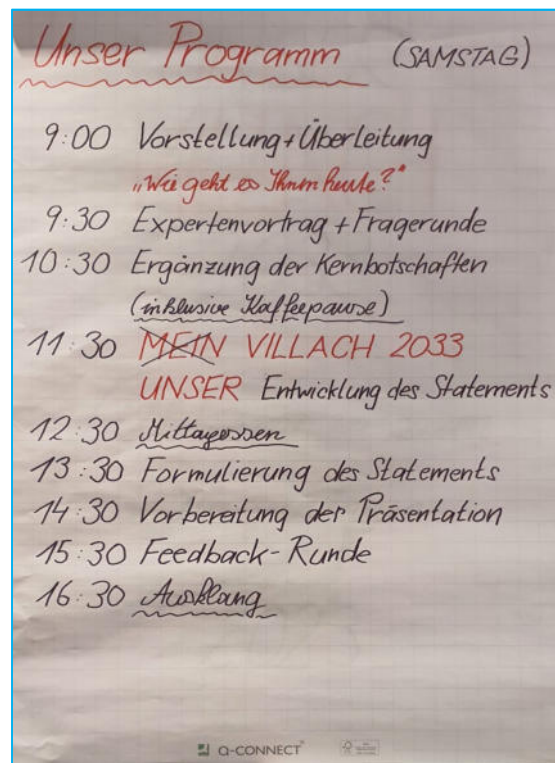 Unser Programm (SAMSTAG)
9:00 Vorstellung + Überleitung
„Wie geht es Ihnen heute?"
9:30 Expertenvortrag + Fragerunde
10:30 Ergänzung der Kernbotschaften
(inklusive Kaffeepause)
11:30 MEIN VILLACH 2033
UNSER Entwicklung des Statements
12:30 Mittagessen
13:30 Formulierung des Statements
14:30 Vorbereitung der Präsentation
15:30 Feedback-Runde
16:30 Ausklang
Q-CONNECT FSC